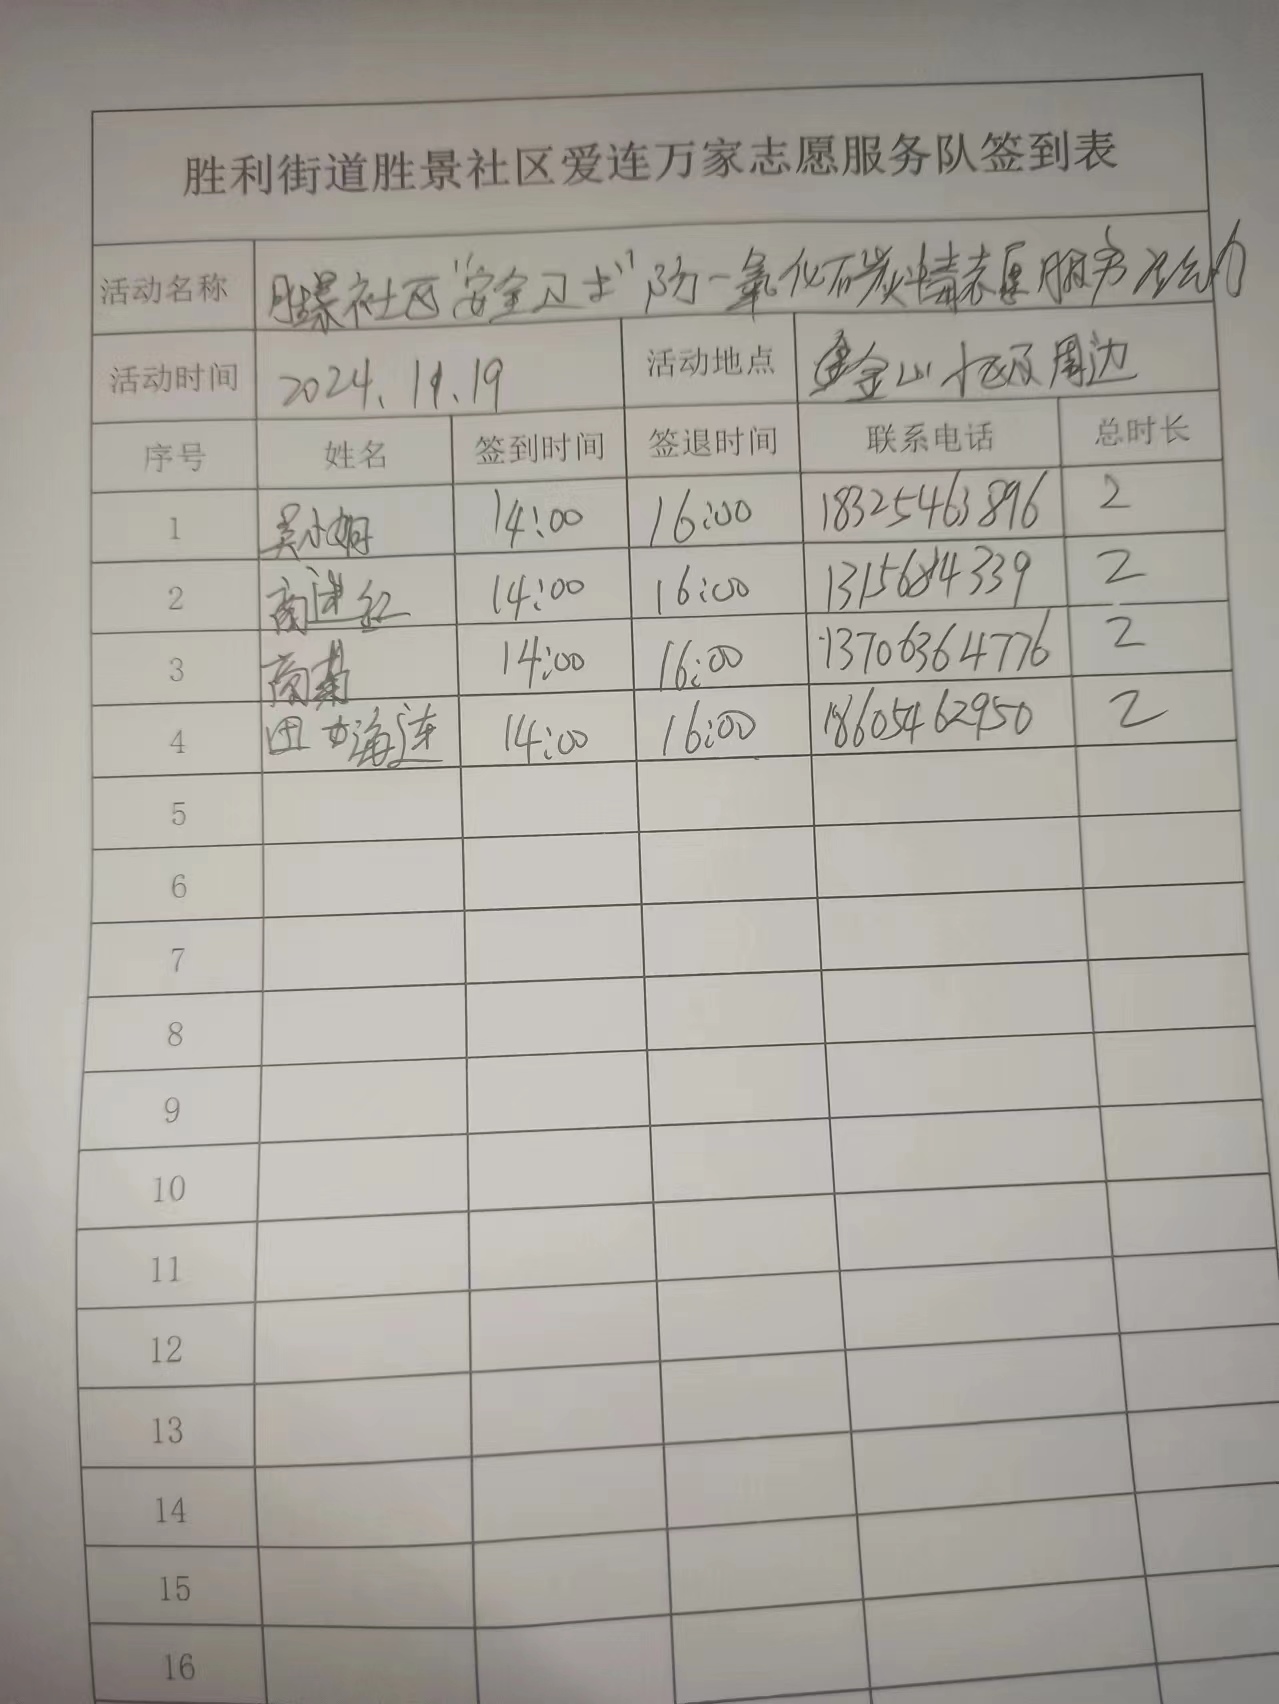 胜利街道胜景社区爱连万家志愿服务队签到表
活动名称 胜景社区"安全卫士"防一氧化碳中毒志愿服务活动
活动时间 2024.11.19 活动地点 金山小区及周边
序号 姓名 签到时间 签退时间 联系电话 总时长
1 吴小娟 14:00 16:00 18325463896 2
2 商进红 14:00 16:00 2
3 商 14:00 16:00 13706364776 2
4 田海连 14:00 16:00 18605462950 2
5
6
7
8
9
10
11
12
13
14
15
16